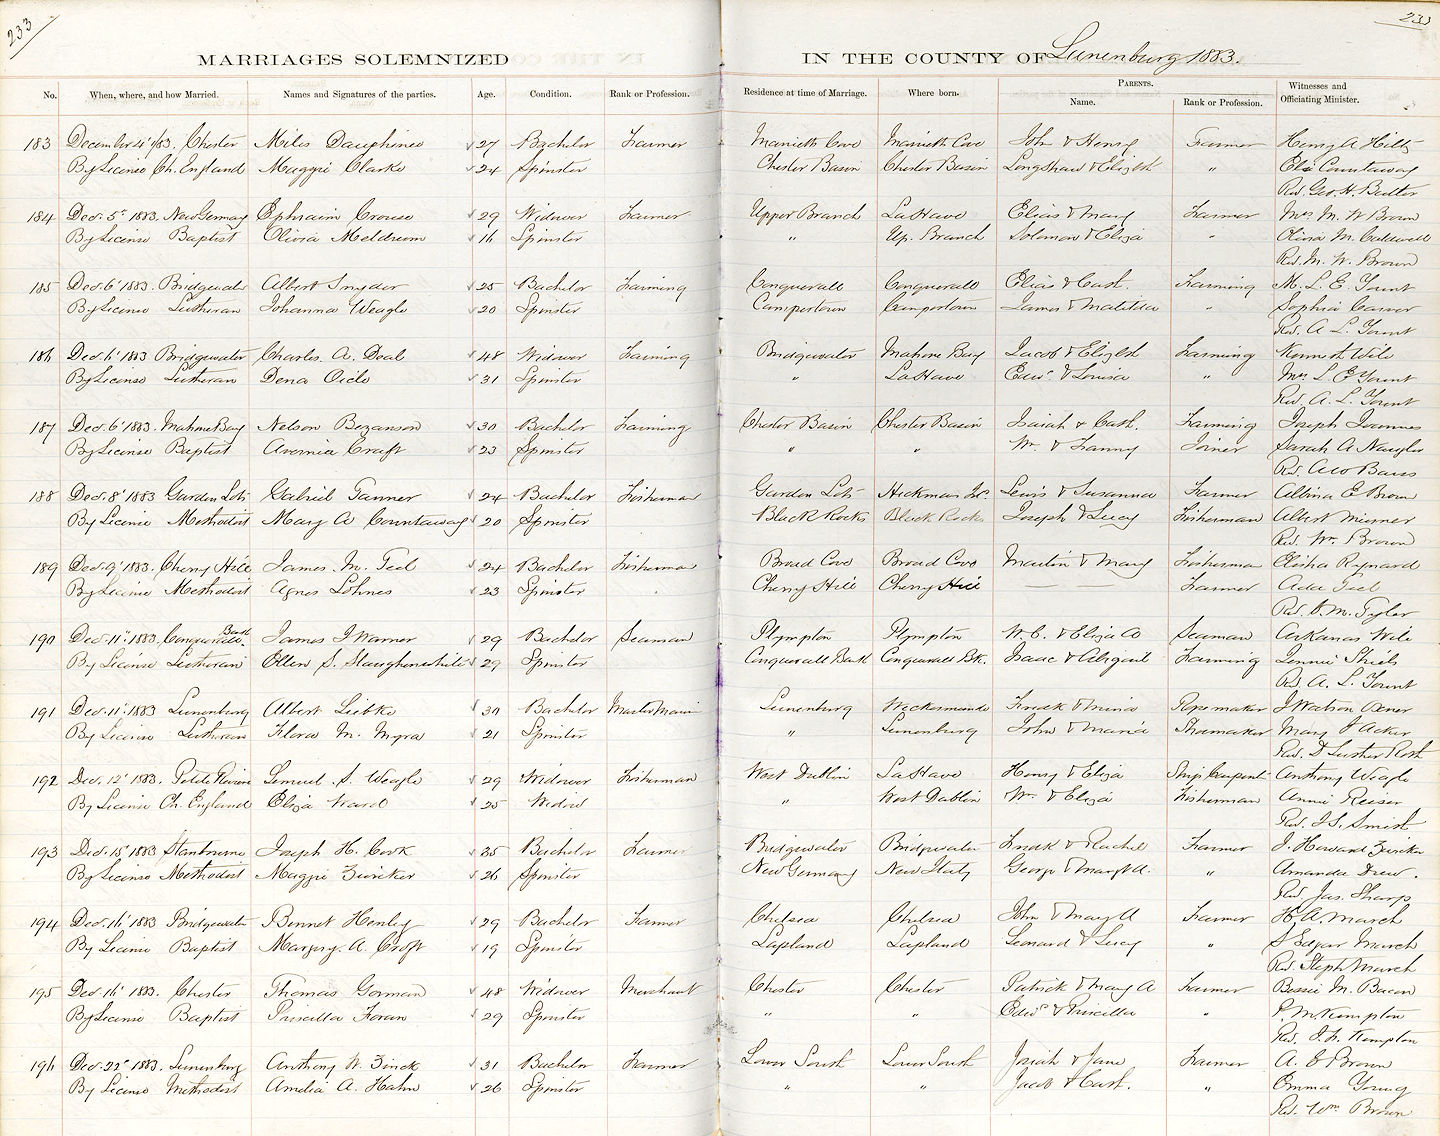 233
233
MARRIAGES SOLEMNIZED IN THE COUNTY OF Lunenburg 1883.
No. When, where, and how Married. Names and Signatures of the parties. Age. Condition. Rank or Profession. Residence at time of Marriage. Where born. PARENTS. Name. Rank or Profession. Witnesses and Officiating Minister.
183 December 4th/83. Chester Miles Dauphinee 27 Bachelor Farmer Marrietts Cove Marrietts Cove John & Henry Farmer Henry A Hilts
By License Ch. England Maggie Clarke 24 Spinster Chester Basin Chester Basin Longshaw & Elizbth " Eli Countaway
Rev. Geo. H. Butler
184 Dec. 5th 1883. New Germany Ephraim Crouse 29 Widower Farmer Upper Branch LaHave Elias & Mary Farmer Mrs M. W Brown
By License Baptist Olivia Meldrum 16 Spinster " Up. Branch Solomon & Eliza " Olivia M. Caldwell
Rev. M. W. Brown
185 Dec. 6' 1883. Bridgewater Albert Snyder 25 Bachelor Farming Conquerall Conquerall Elias & Cath. Farming M. L. E. Yount
By License Lutheran Johanna Weagle 20 Spinster Campertown Campertown James & Matilda " Sophia Carver
Rev. A. L. Yount
186 Dec. 6' 1883 Bridgewater Charles A. Deal 48 Widower Farming Bridgewater Mahone Bay Jacob & Elizbth Farming Kenneth Wile
By License Lutheran Dena Oicle 31 Spinster " LaHave Edwd. & Louisa " Mrs L. E Yount
Rev. A. L. Yount
187 Dec. 6' 1883. Mahone Bay Nelson Bezanson 30 Bachelor Farming Chester Basin Chester Basin Isaiah & Cath. Farming Joseph Joannes
By License Baptist Avernia Craft 23 Spinster " " Wm. & Fanny Joiner Sarah A Naugler
Rev. A W Barss
188 Dec. 8' 1883 Garden Lots Gabriel Tanner 24 Bachelor Fisherman Garden Lots Heckmans Isd. Lewis & Susanna Farmer Albina E Brown
By License Methodist Mary A Countaway 20 Spinster Black Rocks Black Rocks Joseph & Lucy Fisherman Albert
Rev. Wm. Brown
189 Dec. 9' 1883. Cherry Hill James M. Teel 24 Bachelor Fisherman Broad Cove Broad Cove Martin & Mary Fisherman Elisha Rynard
By License Methodist Agnes Lohnes 23 Spinster Cherry Hill Cherry Hill Farmer Ada Teel
Rev. D. M. Tyler
190 Dec. 11" 1883. Conquerall Bank James J Warner 29 Bachelor Seaman Plympton Plympton W. C. & Eliza A Seaman Arkanas Wile
By License Lutheran Ellen S. Slaughenwhite 29 Spinster Conquerall Bank Conquerall Bk. Isaac & Abigail Farming Jennie Shiels
Rev A. L. Yount
191 Dec. 11" 1883 Lunenburg Albert Liebke 30 Bachelor Master Mariner Lunenburg Weckermunde Fredk & Mina Ropemaker J Watson Bener
By License Lutheran Flora M. Myra 21 Spinster " Lunenburg John & Maria Shoemaker Mary J Acker
Rev. D Luther Roth
192 Dec. 12' 1883. Petite Riviere Lemuel S. Weagle 29 Widower Fisherman West Dublin LaHave Henry & Eliza Ship Carpent. Anthony Weagle
By License Ch. England Eliza Ward 25 Widow " West Dublin Wm. & Eliza Fisherman Annie Reiser
Rev. J. S. Smith
193 Dec. 15' 1883 Stanbourne Joseph H. Cook 25 Bachelor Farmer Bridgewater Bridgewater Fredk & Rachel Farmer J. Howard Zwicker
By License Methodist Maggie Zwicker 26 Spinster New Germany New Italy George & Margt A. " Amanda Drew.
Rev Jas. Sharp
194 Dec. 16' 1883 Bridgewater Bennet Henley 29 Bachelor Farmer Chelsea Chelsea John & Mary A Farmer H. A. March
By License Baptist Margry. A. Croft 19 Spinster Lapland Lapland Leonard & Lucy " S Edgar March
Rev. Steph March
195 Dec. 16' 1883. Chester Thomas Gorman 48 Widower Merchant Chester Chester Patrick & Mary A Farmer Bessie M. Bacon
By License Baptist Priscilla Foran 29 Spinster " " Edwd & Priscilla " Kempton
Rev. J. F. Kempton
196 Dec. 22d 1883. Lunenburg Anthony W. Zinck 31 Bachelor Farmer Lower South Lower South Josiah & Jane Farmer A. E Brown
By License Methodist Amelia A. Hahn 26 Spinster " " Jacob & Cath. " Emma Young
Rev. Wm Brown